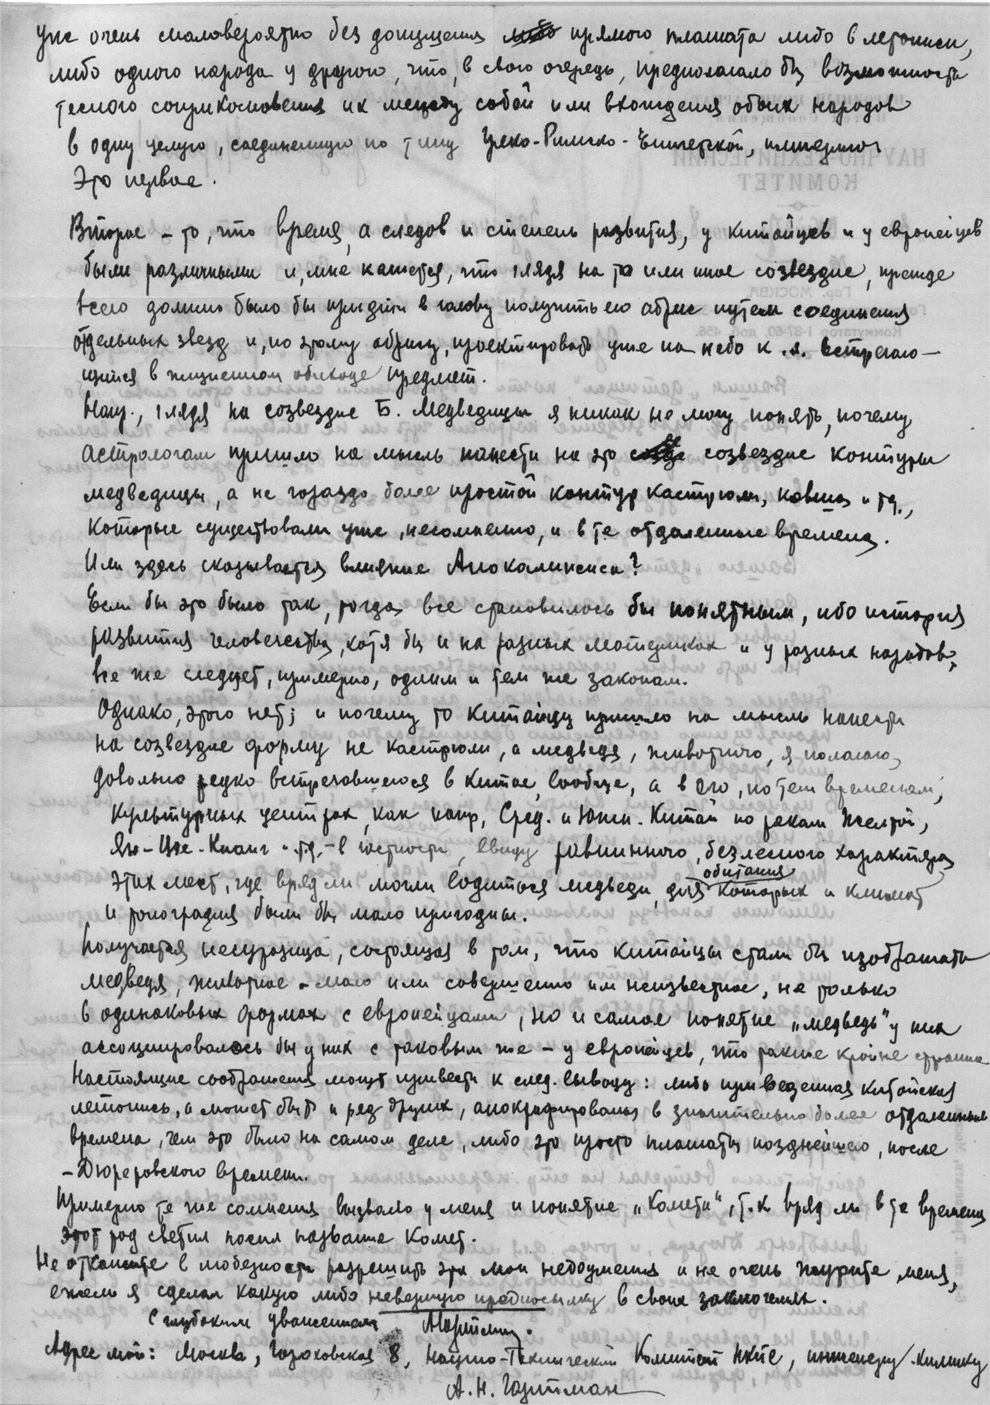 уже очень маловероятно без допущения прямого плагиата либо в летописи,
либо одного народа у другого, что, в свою очередь, предполагало бы возможность
тесного соприкосновения их между собой или вхождения обоих народов
в одну целую, соединенную по типу Греко-Римско-Египетской, империю
Это первое.
Второе – то, что время, а следов и степень развития, у китайцев и у европейцев
были различными и, мне кажется, что глядя на то или иное созвездие, прежде
всего должно было бы придти в голову получить его абрис путем соединения
отдельных звезд и, по этому абрису, проектировать уже на небо к.л. встречаю-
щийся в жизненном обиходе предмет.
Напр., глядя на созвездие Б. Медведицы я никак не могу понять, почему
астрологам пришло на мысль нанести на это созвездие контуры
медведицы, а не гораздо более простой контур кастрюли, ковша и тд.,
которые существовали уже, несомненно, и в те отдаленные времена.
Или здесь сказывается влияние Апокалипсиса?
Если бы это было так, тогда все становилось бы понятным, ибо история
развития человечества, хотя бы и на разных материках и у разных народов,
все же следует, примерно, одним и тем же законам.
Однако, этого нет; и почему то китайцу пришло на мысль нанести
на созвездие форму не кастрюли, а медведя, животного, я полагаю,
довольно редко встречавшегося в Китае, вообще, а в его, по тем временам,
культурных центрах, как напр, Сред. и Южн. Китай по рекам Желтой,
Ян-Цзе-Кианг и тд. – в частности, ввиду равнинного, безлесного характера
этих мест, где вряд ли могли водиться медведи, для обитания которых и климат
и топография были бы мало пригодны.
Получается несуразица, состоящая в том, что китайцы стали бы изображать
медведя, животное – мало или совершенно им неизвестное, не только
в одинаковых формах с европейцами, но и самое понятие „медведь" у них
ассоциировалось бы у них с таковым же – у европейцев, что также крайне странно
Настоящие соображения могут привести к след. выводу: либо приведенная китайская
летопись, а может быть и ряд других, апокрифирована в значительно более отдаленные
времена, чем это было на самом деле, либо это просто плагиаты позднейшего, после
–Дюреровского времени.
Примерно те же сомнения вызвало у меня и понятие „Комета", т.к вряд ли в те времена
этот род светил носил название Комет.
Не откажите в любезности разрешить эти мои недоумения и не очень журите меня,
ежели я сделал какую либо неверную предпосылку в своих заключениях.
С глубоким уважением
Адрес мой: Москва, 8, Научно-Технический Комитет НКПС, инженеру-химику
А. Н. Гартман